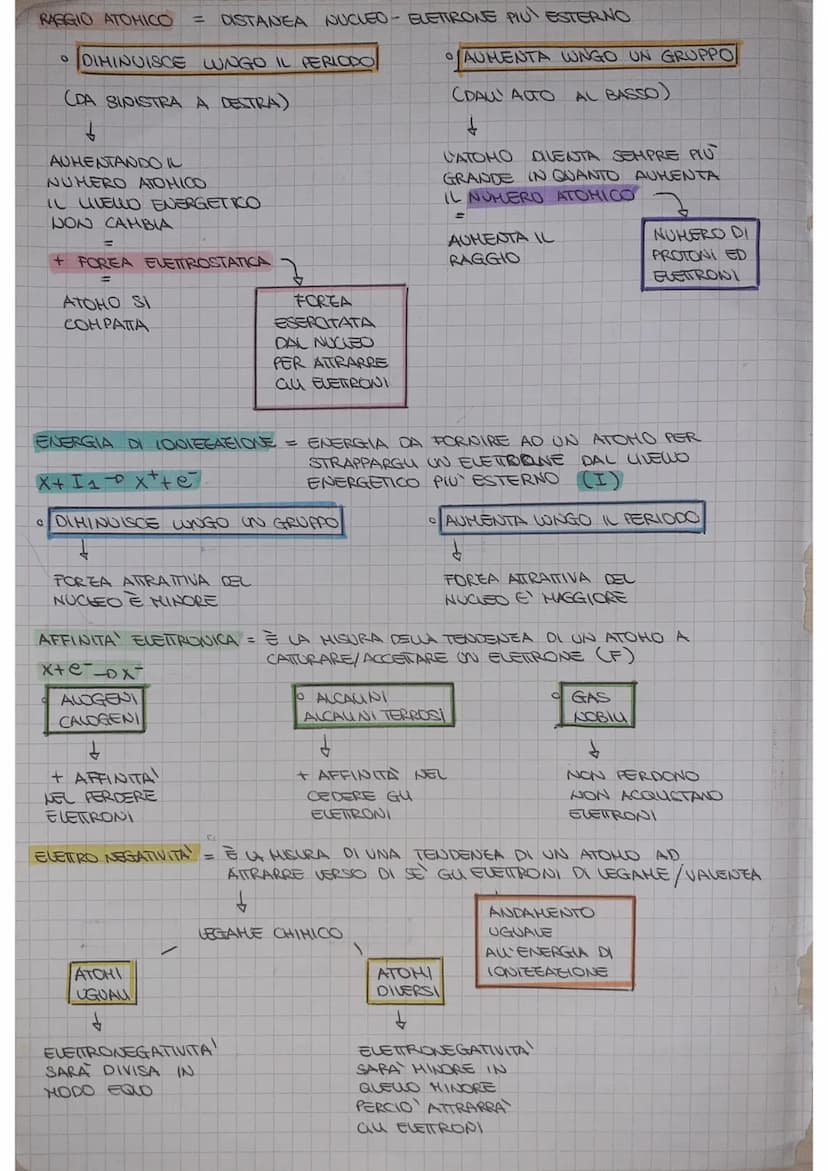 RAGGIO ATOMICO = DISTANZA NUCLEO - ELETTRONE PIU' ESTERNO
DIMINUISCE LUNGO IL PERIODO
(DA SINISTRA A DESTRA)
↓
AUMENTANDO IL
NUMERO ATOMICO
IL LIVELLO ENERGETICO
NON CAMBIA
=
+ FORZA ELETTROSTATICA
=
ATOMO SI
COMPATTA
FORZA
ESERCITATA
DAL NUCLEO
PER ATTRARRE
GLI ELETTRONI
AUMENTA LUNGO UN GRUPPO
(DALL'ALTO AL BASSO)
↓
L'ATOMO DIVENTA SEMPRE PIU'
GRANDE IN QUANTO AUMENTA
IL NUMERO ATOMICO
=
AUMENTA IL
RAGGIO
NUMERO DI
PROTONI ED
ELETTRONI
ENERGIA DI IONIZZAZIONE = ENERGIA DA FORNIRE AD UN ATOMO PER
STRAPPARGLI UN ELETTRONE DAL LIVELLO
ENERGETICO PIU' ESTERNO (I)
X + I1 → X⁺ + e⁻
DIMINUISCE LUNGO UN GRUPPO
↓
FORZA ATTRATTIVA DEL
NUCLEO È MINORE
AUMENTA LUNGO IL PERIODO
↓
FORZA ATTRATTIVA DEL
NUCLEO E' MAGGIORE
AFFINITA' ELETTRONICA = È LA MISURA DELLA TENDENZA DI UN ATOMO A
CATTURARE/ACCETTARE UN ELETTRONE (F)
X + e⁻ → X⁻
ALOGENI
CALOGENI
↓
+ AFFINITA'
NEL PERDERE
ELETTRONI
ALCALINI
ALCALINI TERROSI
↓
+ AFFINITÀ NEL
CEDERE GLI
ELETTRONI
GAS
NOBILI
↓
NON PERDONO
NON ACQUISTANO
ELETTRONI
ELETTRO NEGATIVITA' = È LA MISURA DI UNA TENDENZA DI UN ATOMO AD
ATTRARRE VERSO DI SÈ GLI ELETTRONI DI LEGAME/VALENZA
↓
LEGAME CHIMICO
ANDAMENTO
UGUALE
ALL'ENERGIA DI
IONIZZAZIONE
ATOMI
UGUALI
↓
ELETTRONEGATIVITA'
SARÀ DIVISA IN
MODO EQUO
ATOMI
DIVERSI
↓
ELETTRONEGATIVITA'
SARA' MINORE IN
QUELLO MINORE
PERCIO' ATTRARRA'
GLI ELETTRONI